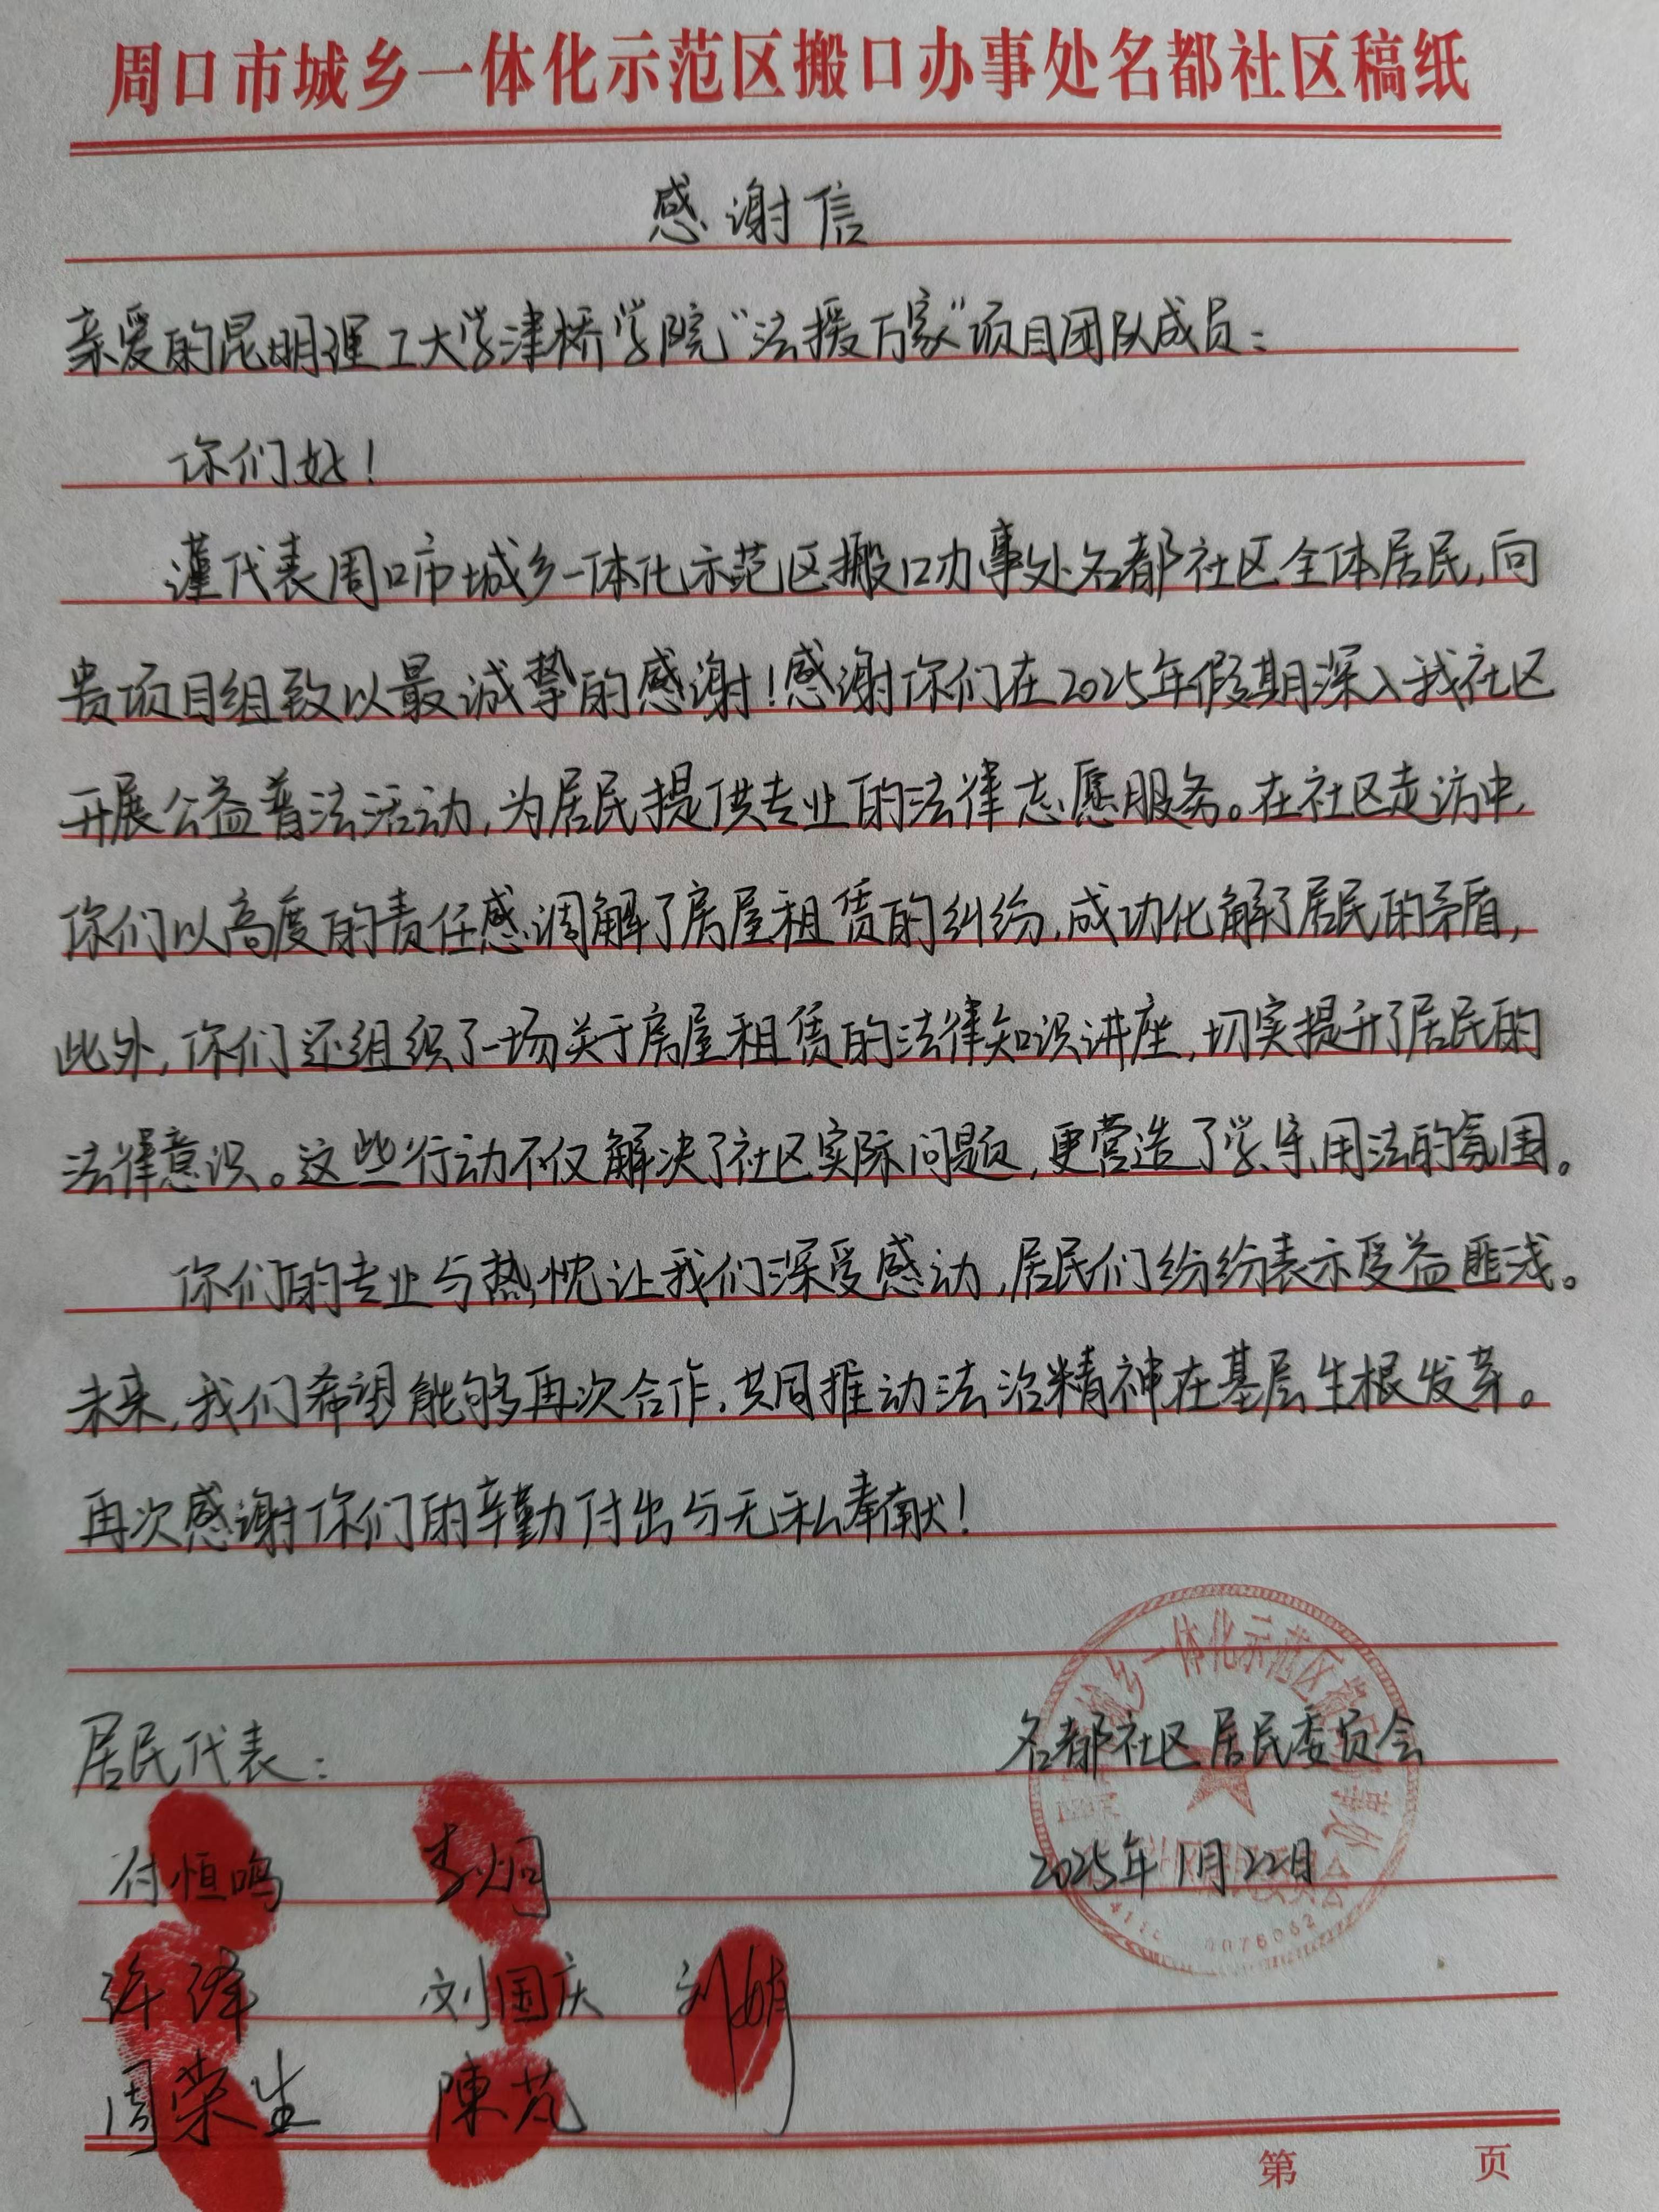 周口市城乡一体化示范区搬口办事处名都社区稿纸
感谢信
亲爱的昆明理工大学津桥学院“法援万家”项目团队成员：
你们好！
谨代表周口市城乡一体化示范区搬口办事处名都社区全体居民，向
贵项目组致以最诚挚的感谢！感谢你们在2025年假期深入我社区
开展公益普法活动，为居民提供专业的法律志愿服务。在社区走访中，
你们以高度的责任感调解了房屋租赁的纠纷，成功化解了居民的矛盾，
此外，你们还组织了一场关于房屋租赁的法律知识讲座，切实提升了居民的
法律意识。这些行动不仅解决了社区实际问题，更营造了学、守、用法的氛围。
你们的专业与热忱让我们深受感动，居民们纷纷表示受益匪浅。
未来，我们希望能够再次合作，共同推动法治精神在基层生根发芽。
再次感谢你们的辛勤付出与无私奉献！
居民代表：
名都社区居民委员会
付恒鸣 李炯
2025年1月22日
许泽 刘国庆 刘
周荣生 陳芃
城乡一体化示范区
第 页